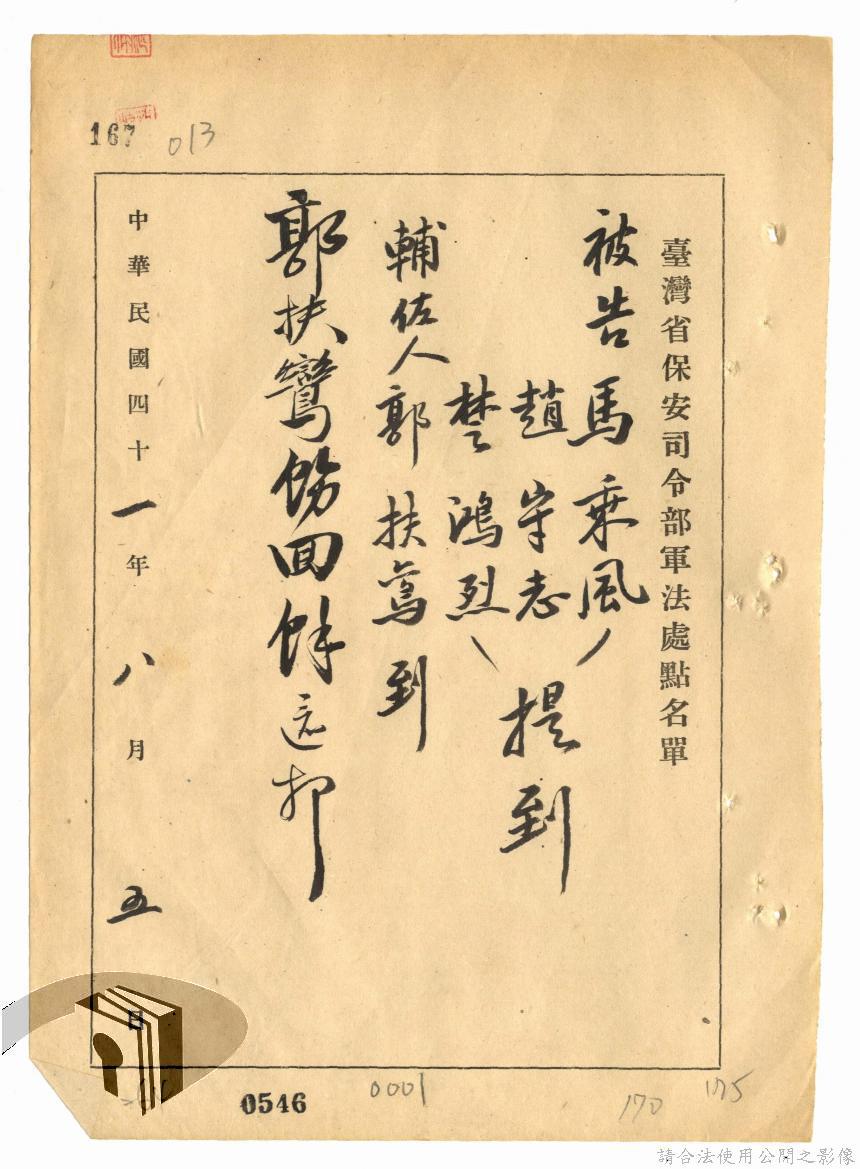 167 013
臺灣省保安司令部軍法處點名單
被告 馬乘風
趙守志
楚鴻烈
提到
輔佐人 郭扶鸞 到
郭扶鸞飭回餘還押
中華民國四十一年八月五日
0546
0001
170
175
請合法使用公開之影像